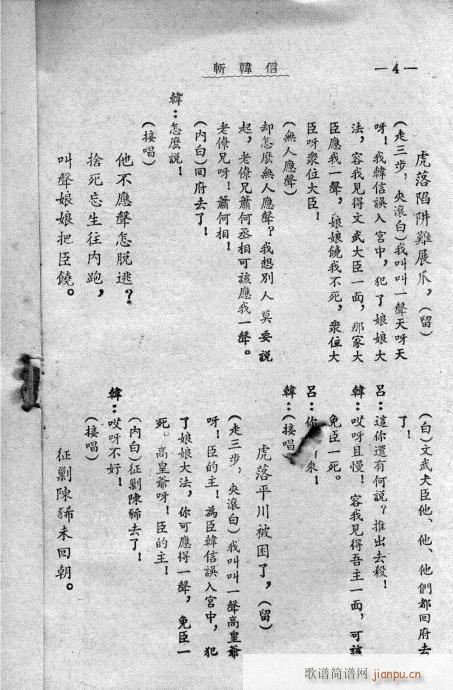 斬韓信
—4—
虎落陷阱難展爪，（留）
（走三步，夾滾白）我叫叫一聲天呀天
呀！我韓信誤入宮中，犯了娘娘大
法，容我見得文武大臣一面，那家大
臣應我一聲，娘娘饒我不死，衆位大
臣呀衆位大臣！
（無人應聲）
却怎麽無人應聲？我想別人莫要說
起，老僚兄蕭何丞相可該應我一聲。
老僚兄呀！蕭何相！
（內白）回府去了！
韓：怎麽說！
（接唱）
他不應聲怎脫逃？
捨死忘生往內跑，
叫聲娘娘把臣饒。
（白）文武大臣他、他、他們都回府去
了！
呂：這你還有何說？推出去殺！
韓：哎呀且慢！容我見得吾主一面，可該
免臣一死。
呂：你 來！
韓：（接唱）
虎落平川被困了，（留）
（走三步，夾滾白）我叫叫一聲高皇爺
呀！臣的主！爲臣韓信誤入宮中，犯
了娘娘大法，你可應得一聲，免臣一
死。高皇爺呀！臣的主！
（內白）征剿陳豨去了！
韓：哎呀不好！
（接唱）
征剿陳豨未回朝。
歌谱简谱网
jianpu.cn